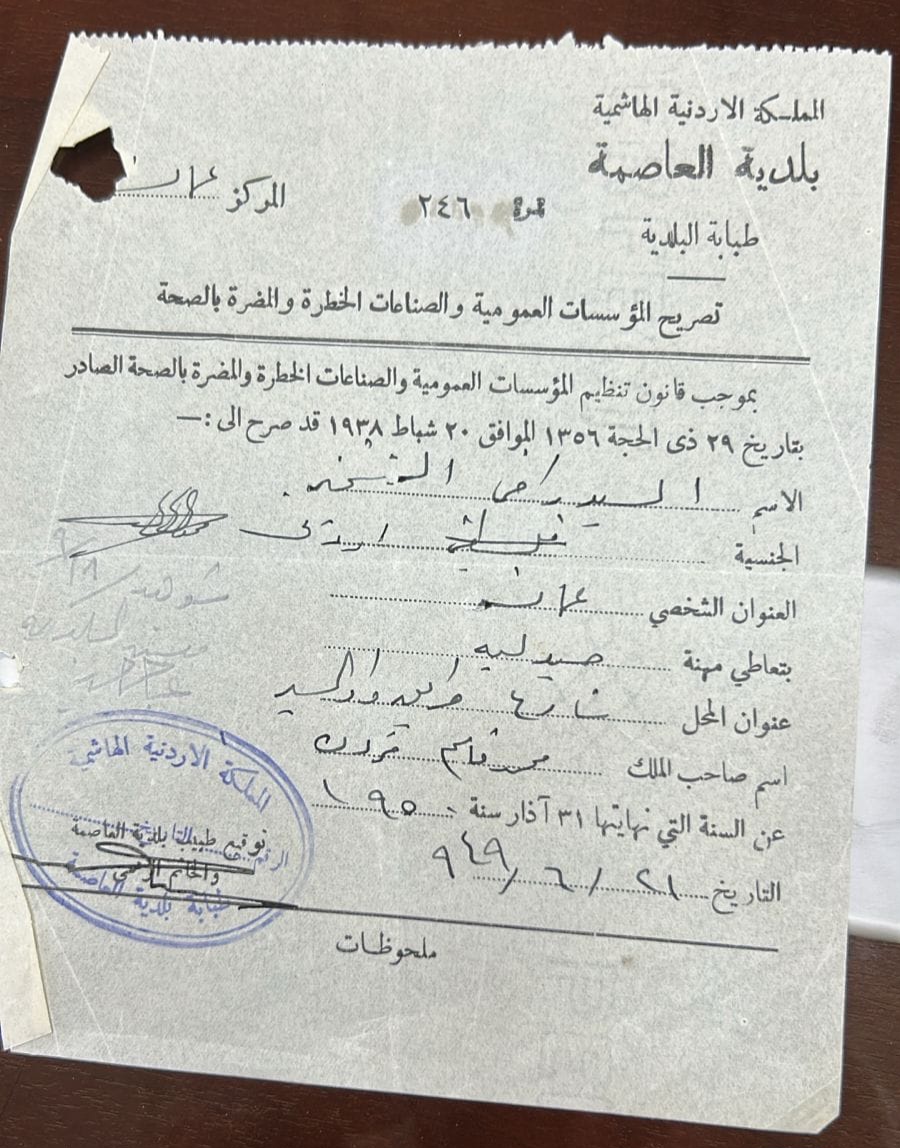 المملكة الاردنية الهاشمية
بلدية العاصمة
المركز عمان
نمرة ٢٤٦
طبابة البلدية
تصريح المؤسسات العمومية والصناعات الخطرة والمضرة بالصحة
بموجب قانون تنظيم المؤسسات العمومية والصناعات الخطرة والمضرة بالصحة الصادر
بتاريخ ٢٩ ذى الحجة ١٣٥٦ الموافق ٢٠ شباط ١٩٣٨ قد صرح الى :—
الاسم السيد
الجنسية اردني
العنوان الشخصي عمان
بتعاطي مهنة صيدلية
عنوان المحل شارع وادي السير
اسم صاحب الملك محمد قاسم
عن السنة التي نهايتها ٣١ آذار سنة ١٩٥٠
التاريخ ٢١/٦/٩٤٩
المملكة الاردنية الهاشمية
توقيع طبيب بلدية العاصمة
والخاتم الرسمي
طبابة بلدية العاصمة
ملحوظات